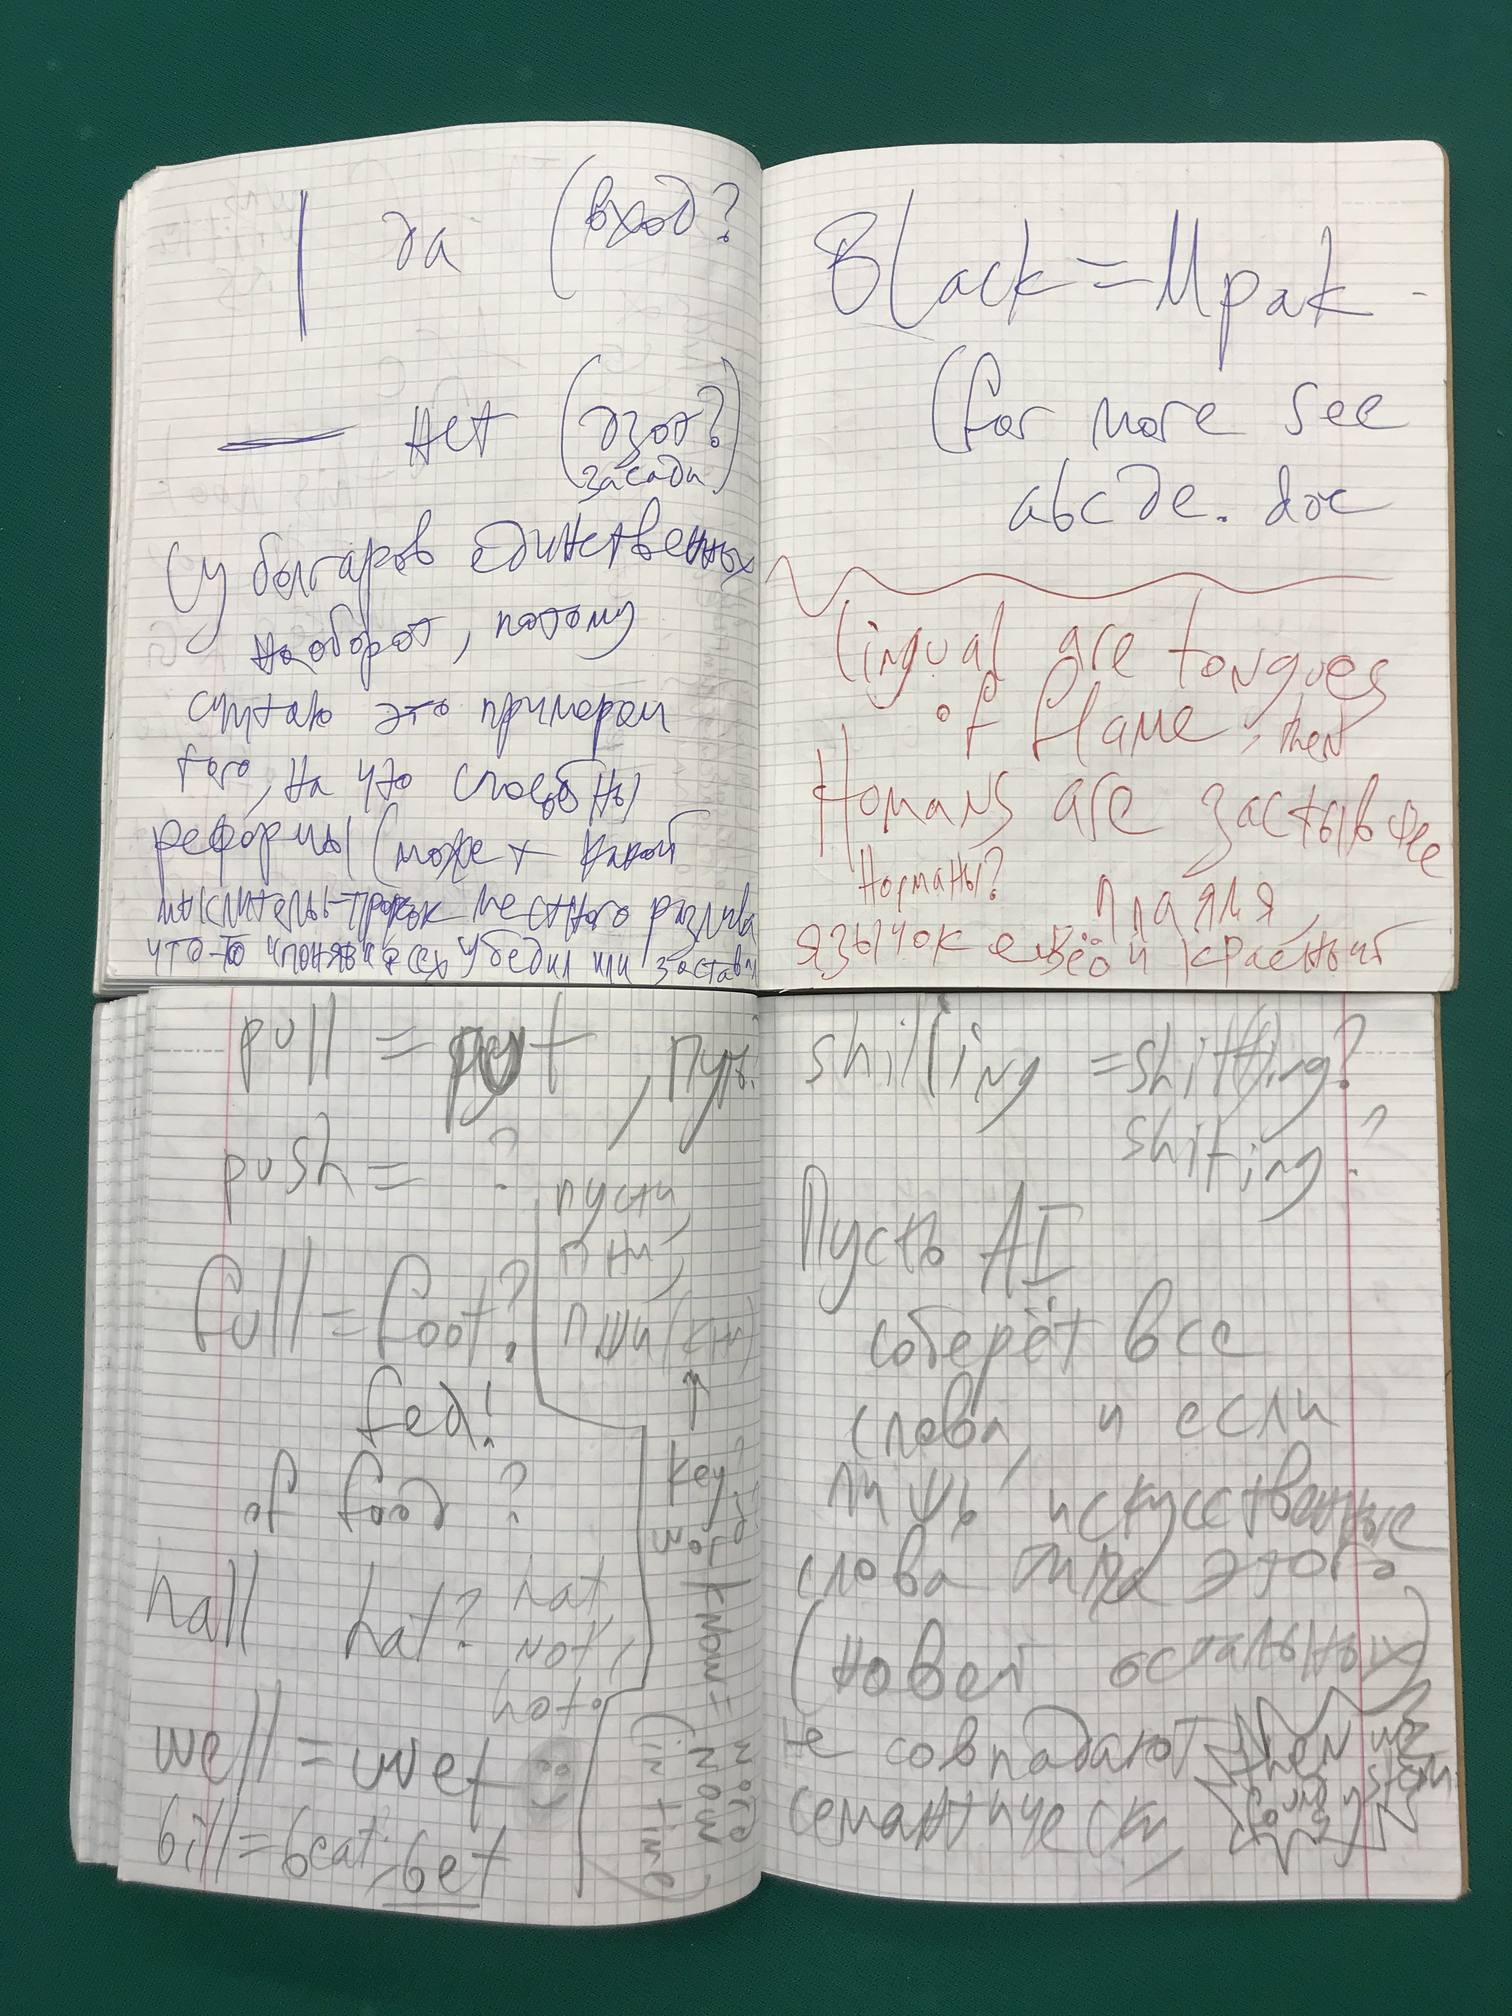 | да (вход?
— нет (взот?
засади)
(у болгаров единственных
наоборот, потому
считаю это примером
того, на что способны
реформы (может какой
мыслитель-пророк местного разлива
что-то понял и всех убедил или заставил
Black = Мрак
(for more see
abcде. doc
Lingual are tongues
of flame, then
Homans are застывшее
Норманы?
пламя,
язычок еввёй красный
pull = put, путь
push = ?
пусти,
пни,
пши(кни)
full = foot?
fed!
of food?
hall hat? hat
not,
hoto
well = wet
bill = beat, bet
key
word
know = now
(in time)
more
shilling = shitting?
shifing?
Пусть AI
соберёт все
слова, и если
лишь искусственные
слова типа этого
(новей остальных)
не совпадают then we
found system
семантически,